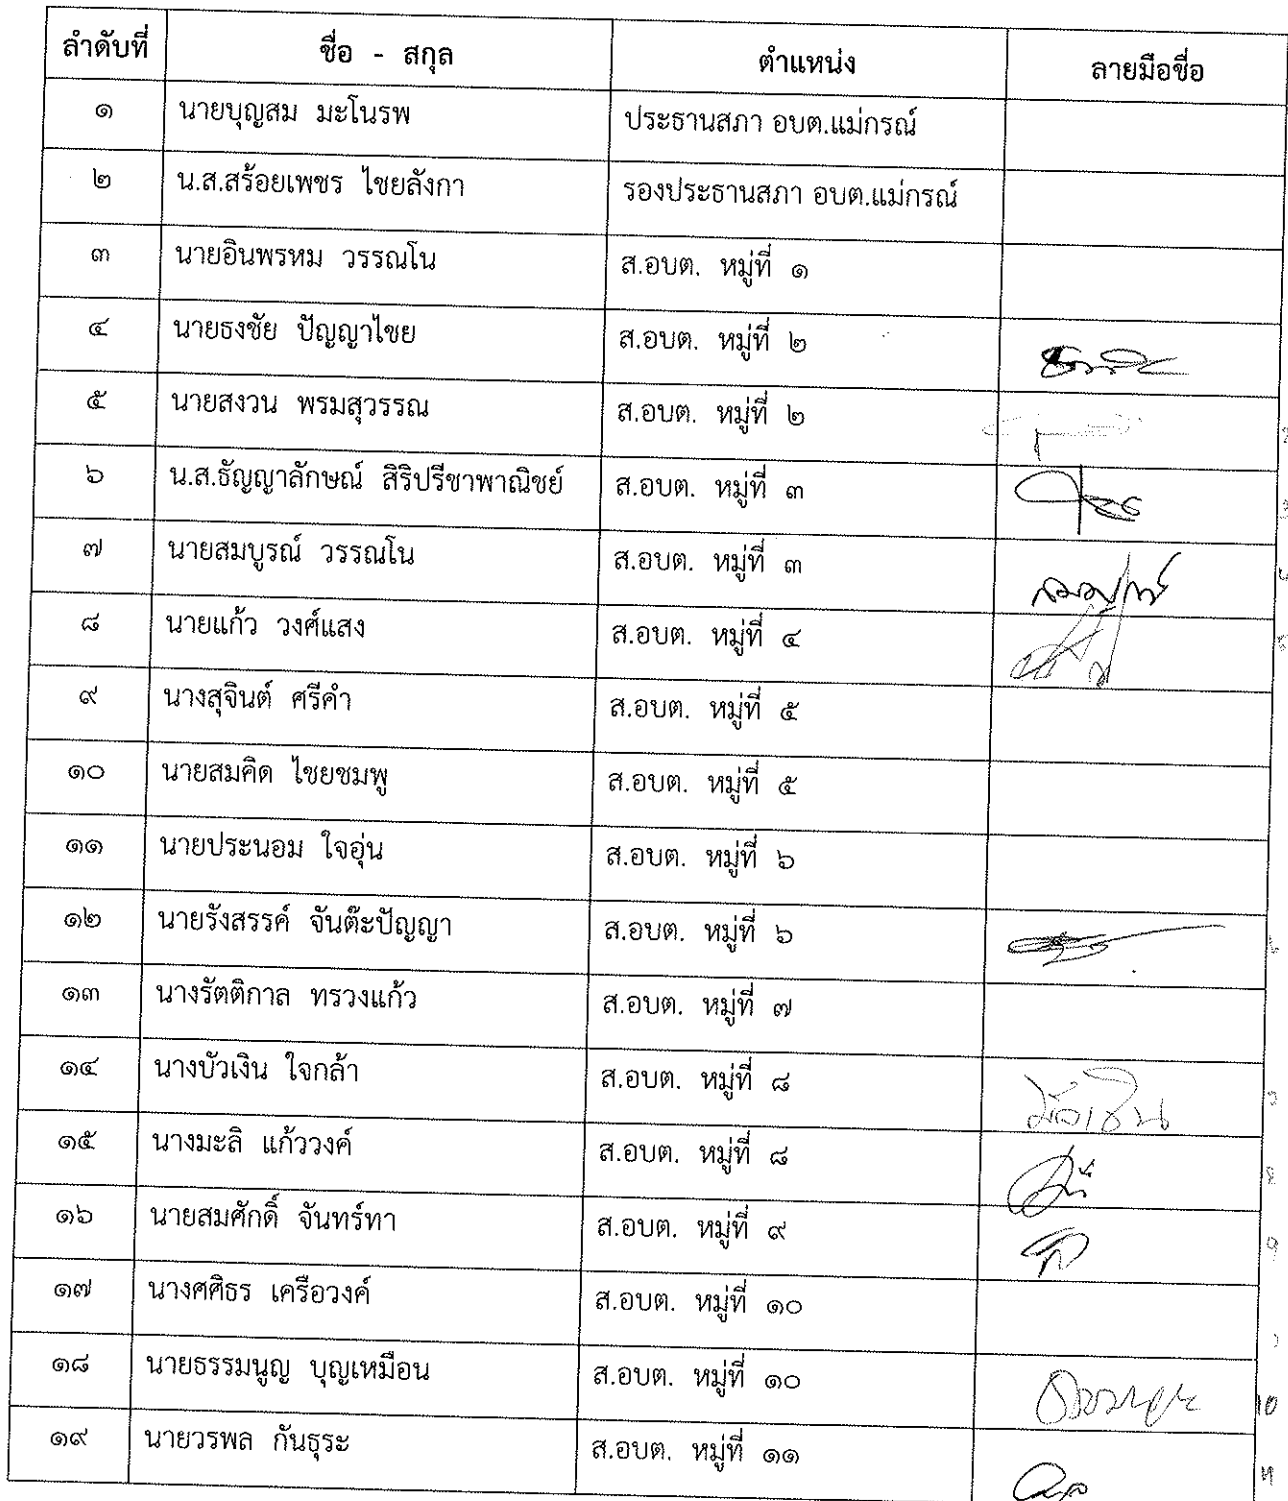 ลำดับที่ ชื่อ - สกุล ตำแหน่ง ลายมือชื่อ
๑ นายบุญสม มะโนรพ ประธานสภา อบต.แม่กรณ์
๒ น.ส.สร้อยเพชร ไชยลังกา รองประธานสภา อบต.แม่กรณ์
๓ นายอินพรหม วรรณโน ส.อบต. หมู่ที่ ๑
๔ นายธงชัย ปัญญาไชย ส.อบต. หมู่ที่ ๒
๕ นายสงวน พรมสุวรรณ ส.อบต. หมู่ที่ ๒
๖ น.ส.ธัญญาลักษณ์ สิริปรีชาพาณิชย์ ส.อบต. หมู่ที่ ๓
๗ นายสมบูรณ์ วรรณโน ส.อบต. หมู่ที่ ๓ สมบูรณ์
๘ นายแก้ว วงศ์แสง ส.อบต. หมู่ที่ ๔
๙ นางสุจินต์ ศรีคำ ส.อบต. หมู่ที่ ๕
๑๐ นายสมคิด ไชยชมพู ส.อบต. หมู่ที่ ๕
๑๑ นายประนอม ใจอุ่น ส.อบต. หมู่ที่ ๖
๑๒ นายรังสรรค์ จันต๊ะปัญญา ส.อบต. หมู่ที่ ๖
๑๓ นางรัตติกาล ทรวงแก้ว ส.อบต. หมู่ที่ ๗
๑๔ นางบัวเงิน ใจกล้า ส.อบต. หมู่ที่ ๘ บัวเงิน
๑๕ นางมะลิ แก้ววงค์ ส.อบต. หมู่ที่ ๘
๑๖ นายสมศักดิ์ จันทร์ทา ส.อบต. หมู่ที่ ๙
๑๗ นางศศิธร เครือวงค์ ส.อบต. หมู่ที่ ๑๐
๑๘ นายธรรมนูญ บุญเหมือน ส.อบต. หมู่ที่ ๑๐ ธรรมนูญ 10
๑๙ นายวรพล กันธุระ ส.อบต. หมู่ที่ ๑๑